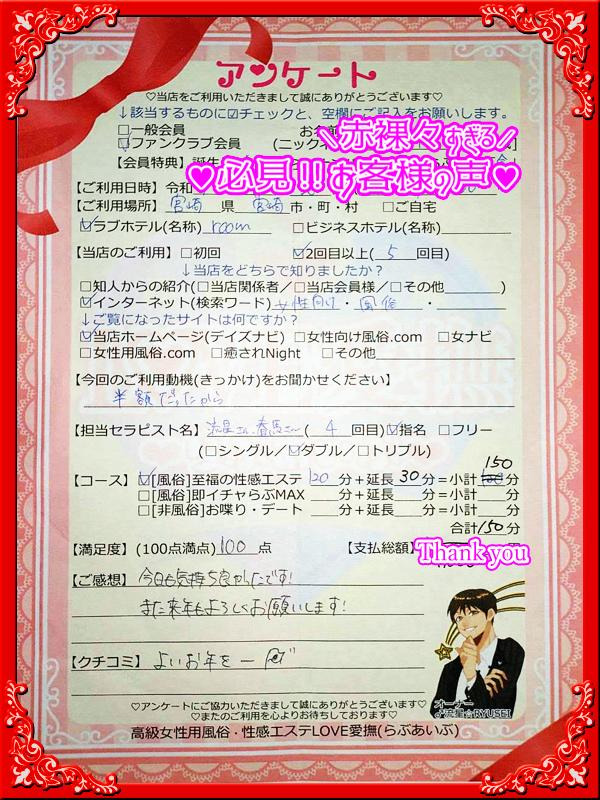 アンケート
♡当店をご利用いただきまして誠にありがとうございます♡
↓該当するものに☑チェックと、空欄にご記入をお願いします。
□一般会員
□ファンクラブ会員 (ニックネ
\赤裸々すぎる/
♥必見!!お客様の声♥
【会員特典】誕生
【ご利用日時】令和
【ご利用場所】宮崎 県 宮崎 市・町・村 □ご自宅
☑ラブホテル(名称) room □ビジネスホテル(名称)
【当店のご利用】□初回 ☑2回目以上( 5 回目)
↓当店をどちらで知りましたか?
□知人からの紹介(□当店関係者/□当店会員様/□その他 )
☑インターネット(検索ワード) 女性向け・風俗・
↓ご覧になったサイトは何ですか?
☑当店ホームページ(デイズナビ) □女性向け風俗.com □女ナビ
□女性用風俗.com □癒されNight □その他
【今回のご利用動機(きっかけ)をお聞かせください】
半額だったから
【担当セラピスト名】流星さん、春馬さん ( 4 回目)☑指名 □フリー
(□シングル/☑ダブル/□トリプル)
150
【コース】☑[風俗]至福の性感エステ 120 分+延長 30 分=小計 分
□[風俗]即イチャらぶMAX 分+延長 分=小計 分
□[非風俗]お喋り・デート 分+延長 分=小計 分
合計150分
【満足度】(100点満点) 100 点 【支払総額】
Thank you
【ご感想】今日も気持ち良かったです!
また来年もよろしくお願いします!
【クチコミ】よいお年を
オーナー
♂流星☆RYUSEI
♡アンケートにご協力いただきまして誠にありがとうございます♡
♡またのご利用を心よりお待ちしております♡
高級女性用風俗・性感エステLOVE愛撫(らぶあいぶ)